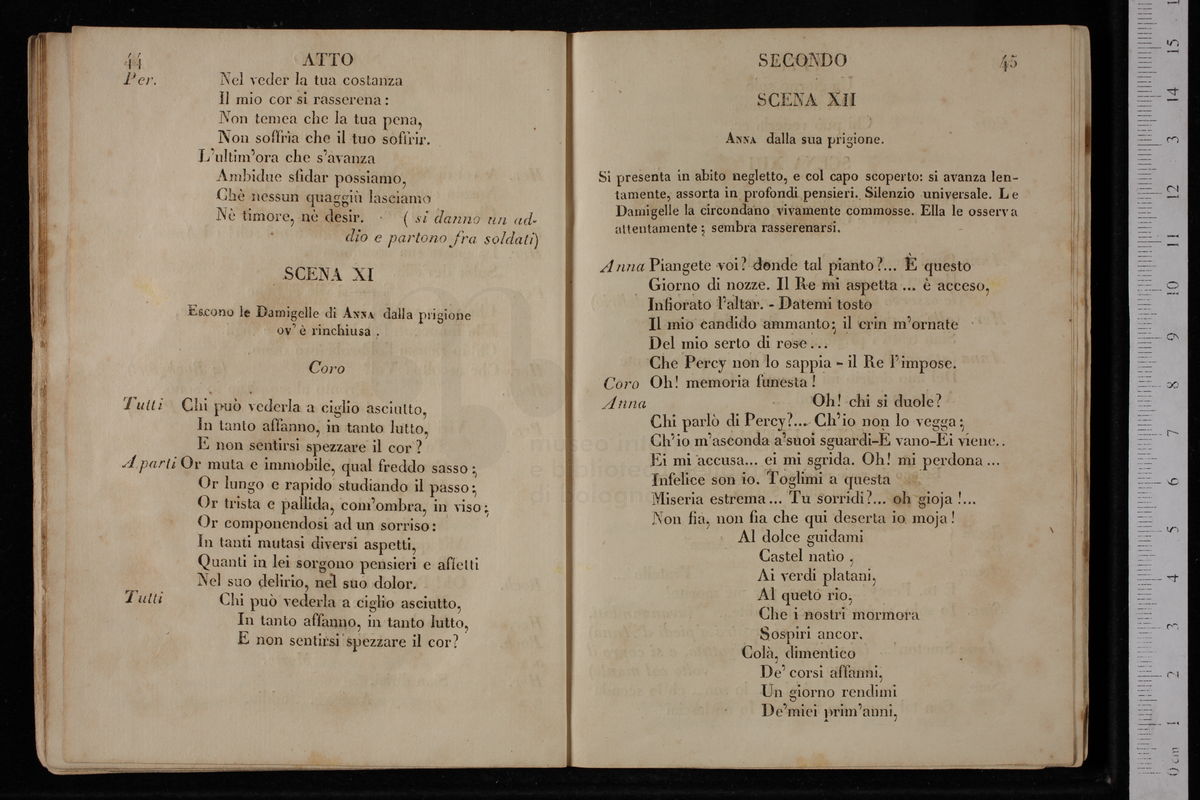 44 ATTO
Per. Nel veder la tua costanza
Il mio cor si rasserena:
Non temea che la tua pena,
Non soffria che il tuo soffrir.
L'ultim'ora che s'avanza
Ambidue sfidar possiamo,
Chè nessun quaggiù lasciamo
Nè timore, nè desir. (si danno un ad-
dio e partono fra soldati)
SCENA XI
Escono le Damigelle di ANNA dalla prigione
ov'è rinchiusa.
Coro
Tutti Chi può vederla a ciglio asciutto,
In tanto affanno, in tanto lutto,
E non sentirsi spezzare il cor?
A parti Or muta e immobile, qual freddo sasso;
Or lungo e rapido studiando il passo;
Or trista e pallida, com'ombra, in viso;
Or componendosi ad un sorriso:
In tanti mutasi diversi aspetti,
Quanti in lei sorgono pensieri e affetti
Nel suo delirio, nel suo dolor.
Tutti Chi può vederla a ciglio asciutto,
In tanto affanno, in tanto lutto,
E non sentirsi spezzare il cor?
SECONDO 45
SCENA XII
ANNA dalla sua prigione.
Si presenta in abito negletto, e col capo scoperto: si avanza len-
tamente, assorta in profondi pensieri. Silenzio universale. Le
Damigelle la circondano vivamente commosse. Ella le osserva
attentamente; sembra rasserenarsi.
Anna Piangete voi? donde tal pianto?... È questo
Giorno di nozze. Il Re mi aspetta... è acceso,
Infiorato l'altar. - Datemi tosto
Il mio candido ammanto; il crin m'ornate
Del mio serto di rose...
Che Percy non lo sappia - il Re l'impose.
Coro Oh! memoria funesta!
Anna Oh! chi si duole?
Chi parlò di Percy?... Ch'io non lo vegga;
Ch'io m'asconda a'suoi sguardi-E vano-Ei viene..
Ei mi accusa... ei mi sgrida. Oh! mi perdona...
Infelice son io. Toglimi a questa
Miseria estrema... Tu sorridi?... oh gioja!...
Non fia, non fia che qui deserta io moja!
Al dolce guidami
Castel natìo,
Ai verdi platani,
Al queto rio,
Che i nostri mormora
Sospiri ancor.
Colà, dimentico
De' corsi affanni,
Un giorno rendimi
De'miei prim'anni,